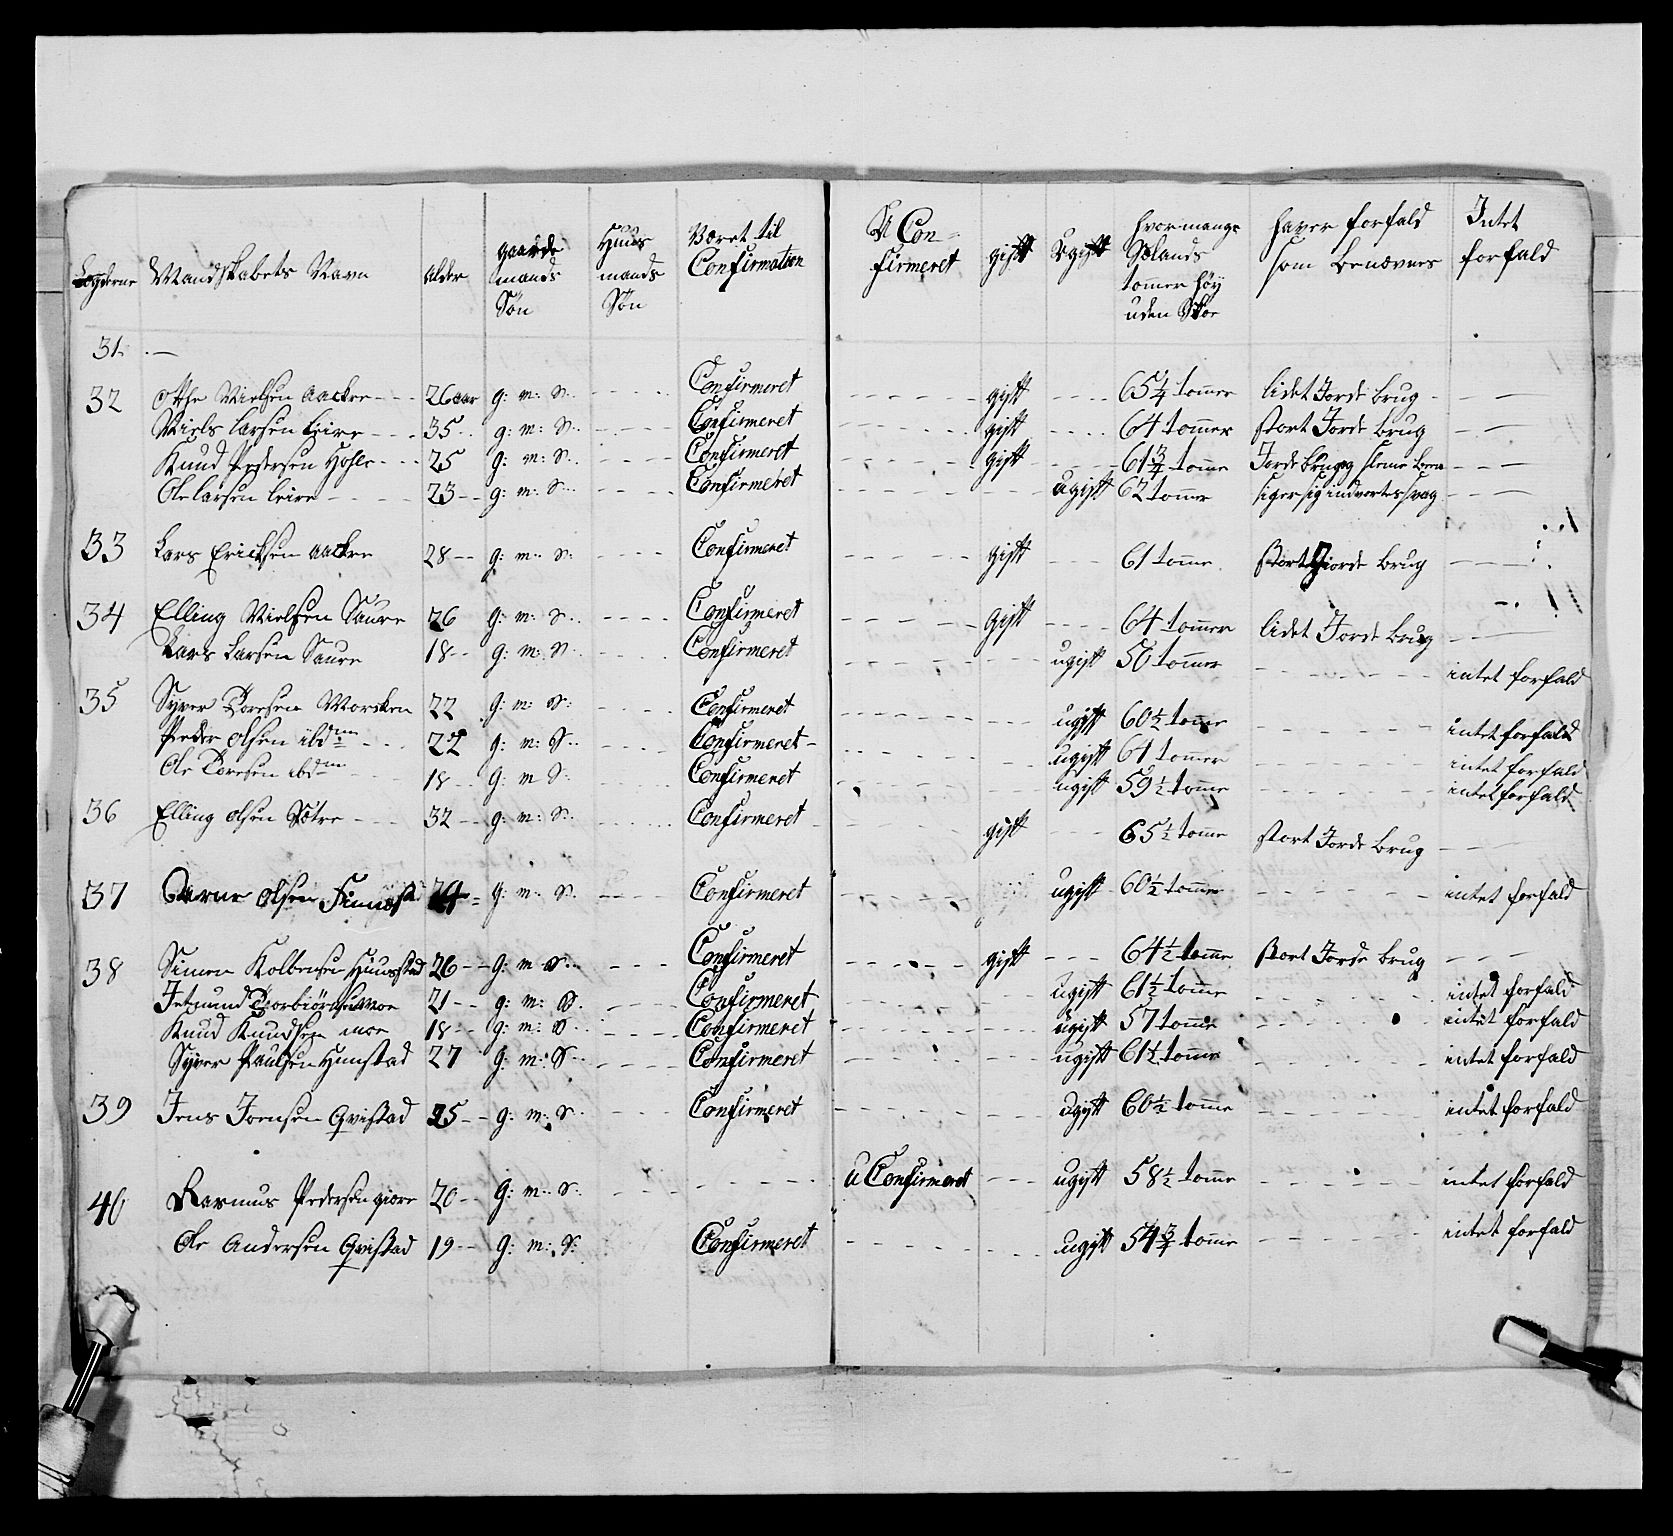 Lægderne Mandskabets Navn Alder gaarde mands Søn Huus mands Søn Været til Confirmation U Confirmeret gift Ugift hvor mange Sælands tomer høy uden Skoe haver forfald som benævnes Intet forfald
31. —
32 Nielsen Aacker 26 aar g: m: S: Confirmeret gift 65 1/4 tomer lidet Jorde brug
Niels Larsen Leire 35 g: m: S: Confirmeret gift 64 tommer stort Jorde brug
Knud Pedersen Hohle 25 g: m: S: Confirmeret gift 61 3/4 tomme Jorde brug og
Ole Larsen Leire 23 g: m: S: Confirmeret ugift 62 tommer siger sig indvortes svag
33 Lars Ericksen Aackre 28 g: m: S: Confirmeret gift 61 tomme stort Jorde brug
34 Elling Nielsen Saure 26 g: m: S: Confirmeret gift 64 tommer lidet Jorde brug
Lars Larsen Saure 18 g: m: S: Confirmeret ugift 50 tommer intet forfald
35 Syver Toresen Morcken 22 g: m: S: Confirmeret ugift 60 1/2 tomme intet forfald
Peder Olsen ibdm 22 g: m: S: Confirmeret ugift 61 tommer intet forfald
Ole Toresen ibdm 18 g: m S: Confirmeret ugift 59 1/2 tomme intet forfald
36 Elling Olsen Sætre 32 g: m: S: Confirmeret gift 65 1/2 tomme stort Jorde brug
37 Arne Olsen 24 g: m: S: Confirmeret ugift 60 1/2 tomme intet forfald
38 Simen Kolbensen Hunstad 26 g: m S: Confirmeret gift 64 1/2 tomme stort Jorde brug
Jetmund 21 g: m: S: Confirmeret ugift 61 1/2 tomme intet forfald
Knud Knudsen moe 18 g: m: S: Confirmeret ugift 57 tomme intet forfald
Syver Paulsen Hunstad 27 g: m: S: Confirmeret ugift 61 1/2 tomme intet forfald
39 Jens Joensen Qvistad 25 g: m: S: Confirmeret ugift 60 1/2 tomme intet forfald
40 Rasmus Pedersen giøre 20 g: m: S: U Confirmeret ugift 58 1/2 tomme intet forfald
Ole Andersen Qvistad 19 g: m: S: Confirmeret ugift 54 3/4 tomme intet forfald